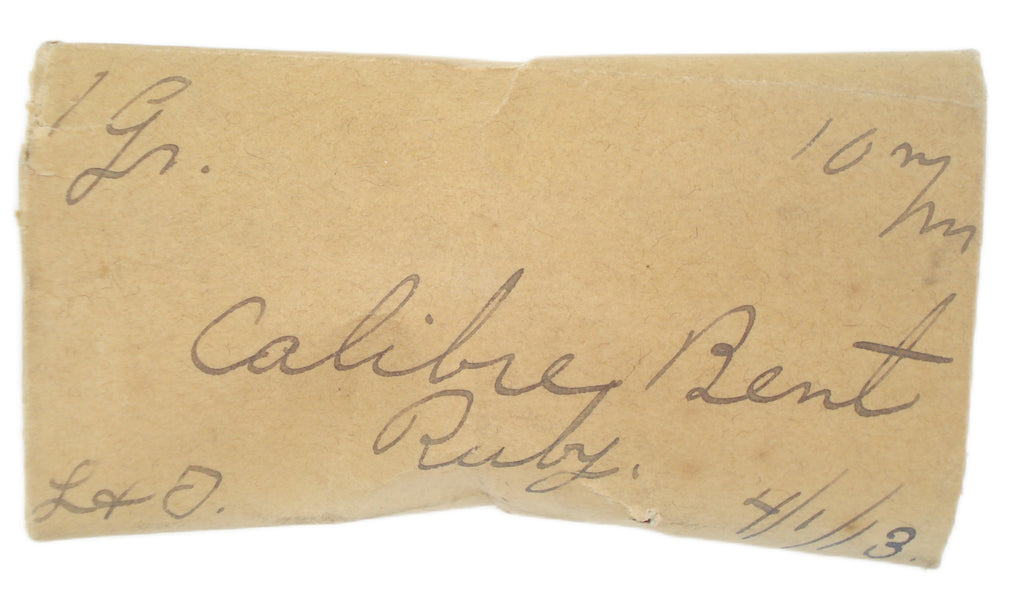 1 Gr.
10 m/m
Calibre Bent
Ruby.
L & D.
4/1/13.